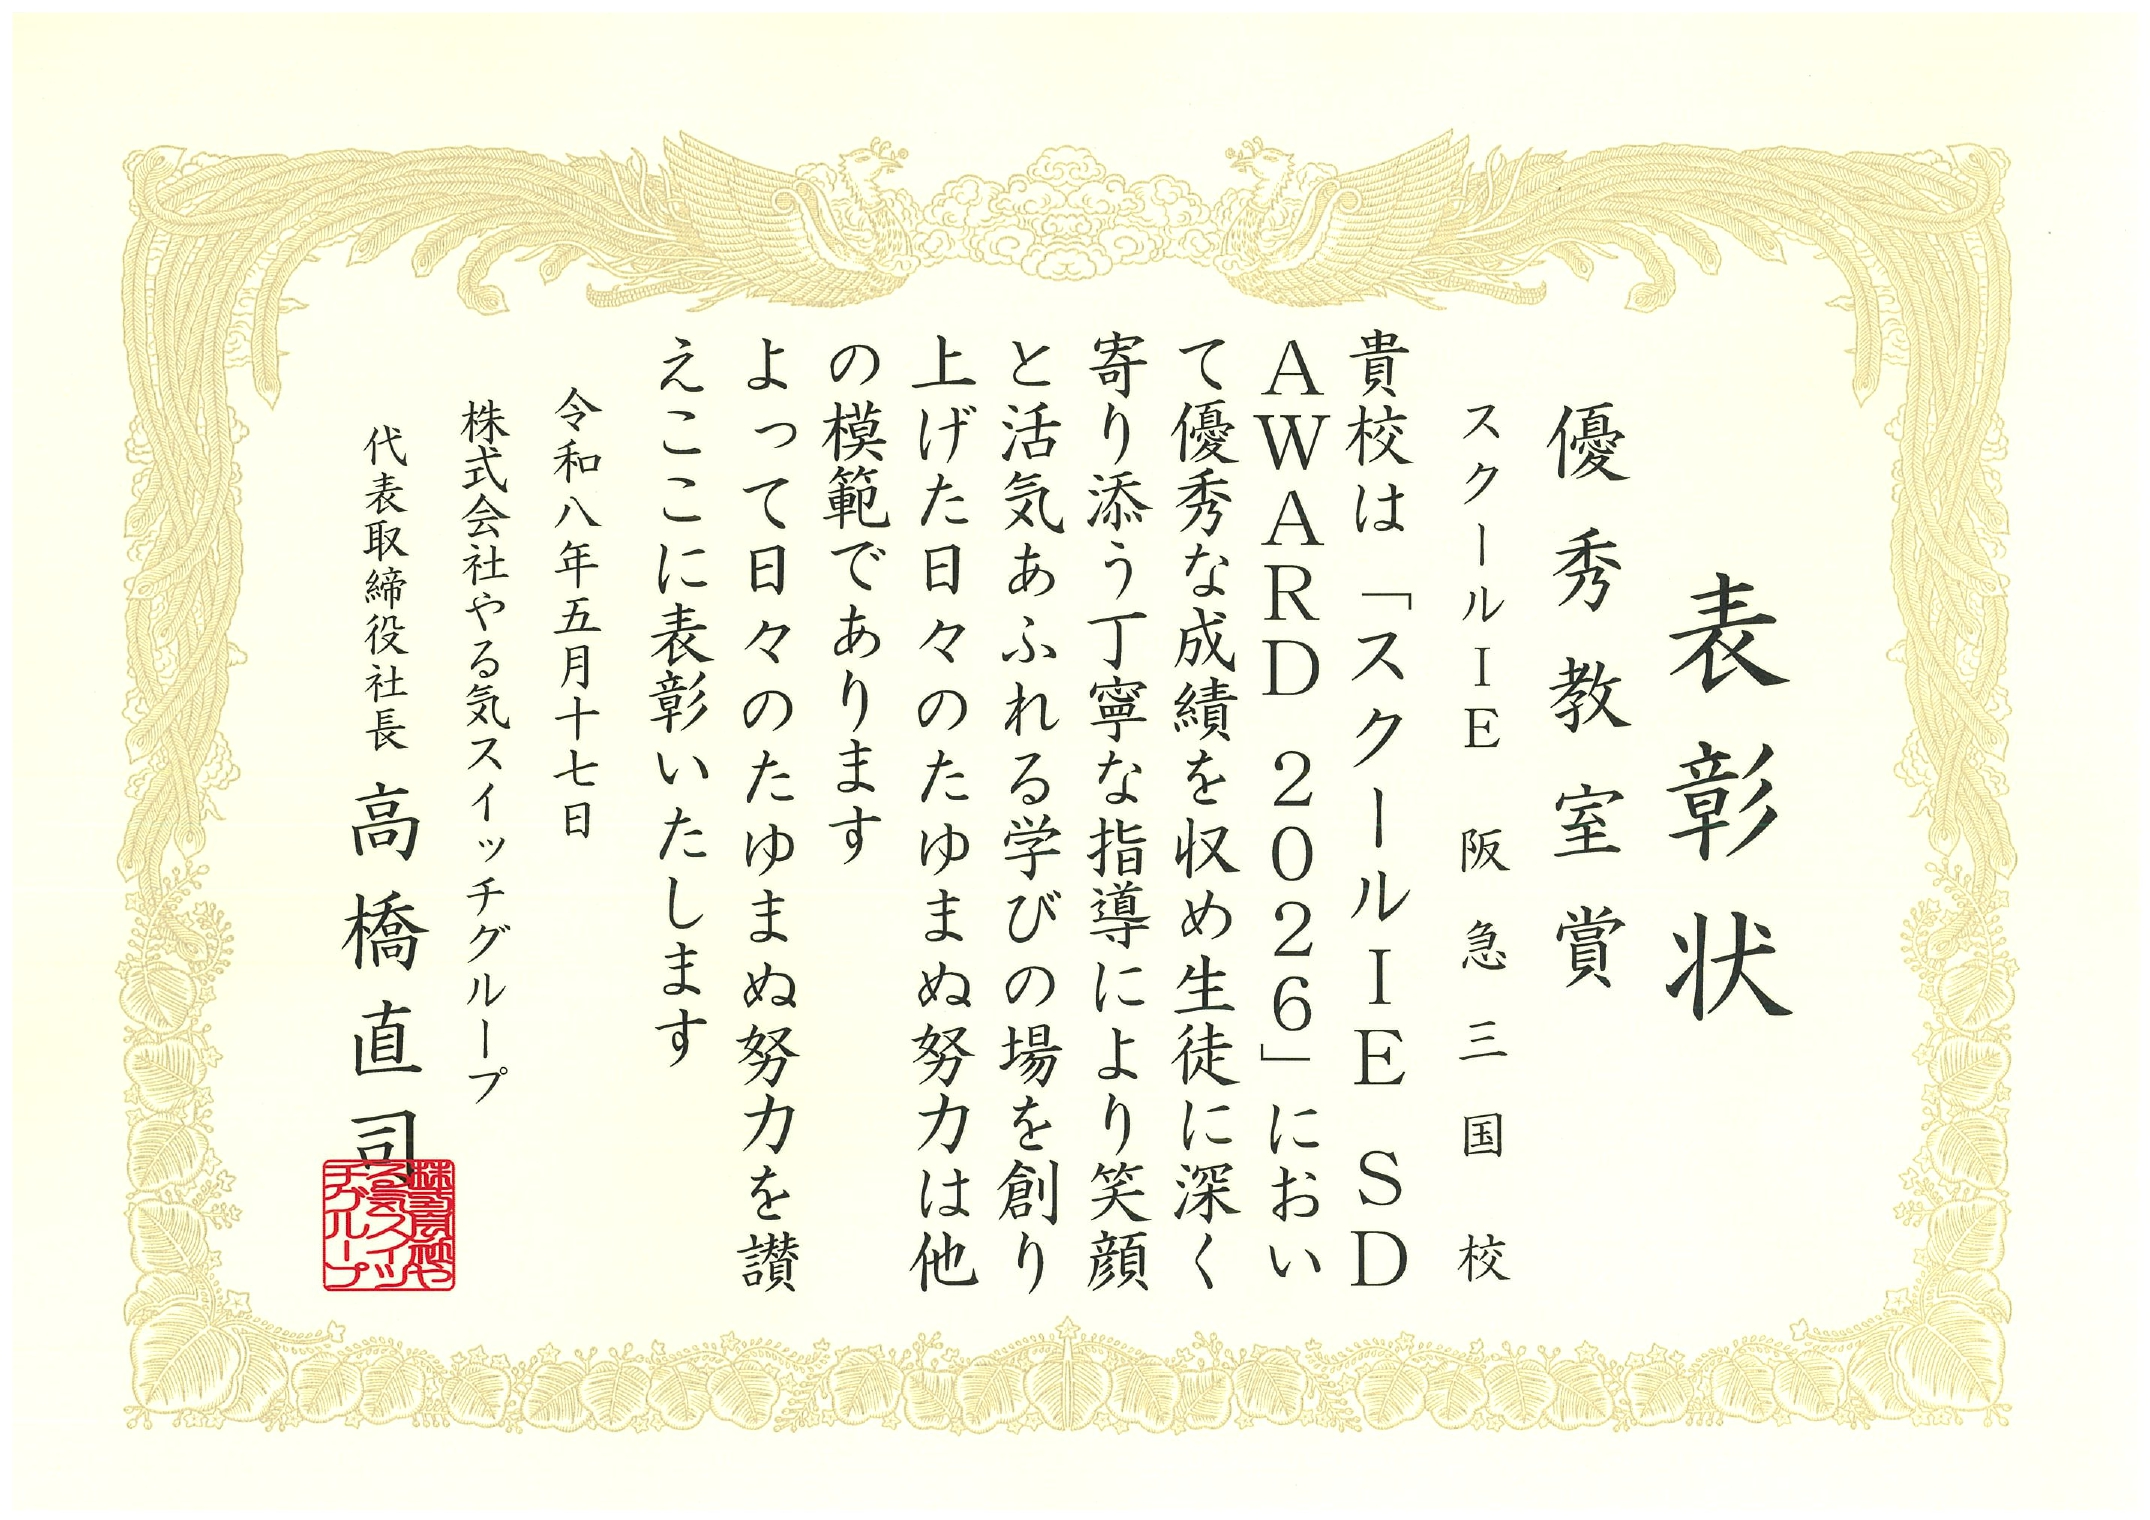 表彰状
優秀教室賞
スクールIE 阪急三国校
貴校は「スクールIE SD
AWARD 2026」におい
て優秀な成績を収め生徒に深く
寄り添う丁寧な指導により笑顔
と活気あふれる学びの場を創り
上げた日々のたゆまぬ努力は他
の模範であります
よって日々のたゆまぬ努力を讃
えここに表彰いたします
令和八年五月十七日
株式会社やる気スイッチグループ
代表取締役社長 高橋直司
株式会社や
る気スイッ
チグループ